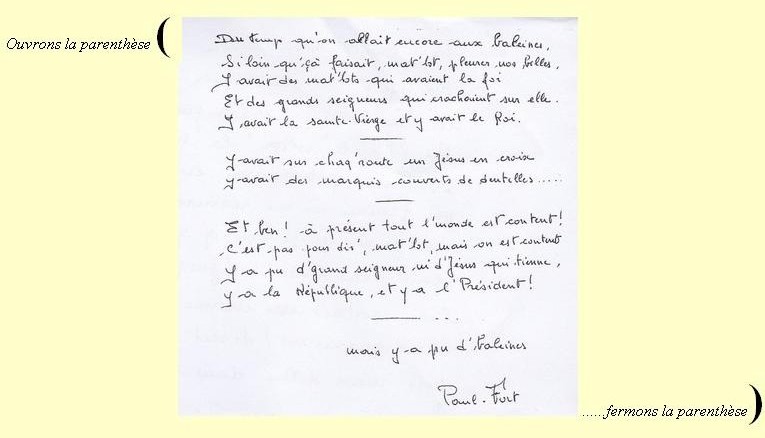 Ouvrons la parenthèse (
Du temp qu'on allait encore aux baleines,
Si loin qu'çà faisait, mat'lot, pleurer nos belles,
Y avait des mat'lots qui avaient la foi
Et des grands seigneurs qui crachaient sur elle.
Y avait la sainte-Vierge et y avait le Roi.
Y-avait sur chaq'route un Jésus en croix
y-avait des marquis couverts de dentelles.....
Et ben! à présent tout l'monde est content!
C'est pas pour dir', mat'lot, mais on est content
Y a pu d'grand seigneur ni d'Jésus qui tienne,
y-a la République, et y-a l'Président!
...
mais y-a pu d'baleines
Paul-Fort
......fermons la parenthèse )